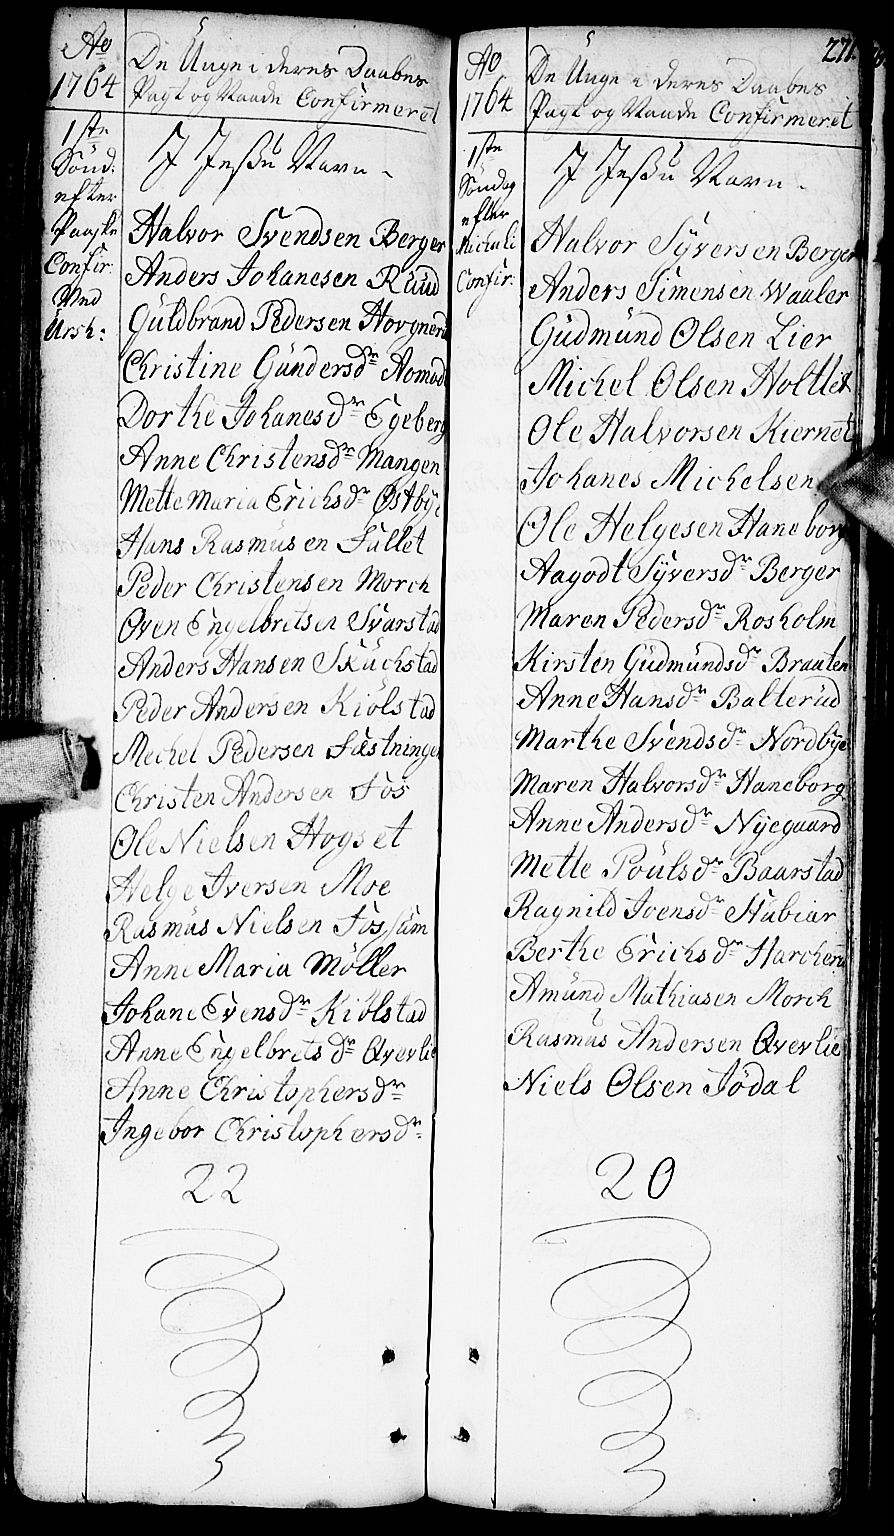 Ao
1764
De Unge i deres Daabes
Pagt og Naade Confirmeret
1ste
Sönd:
efter
Paaske
Confir:
Ved
Ursk:
I Jesu Navn
Halvor Svendsen Berger
Anders Johanesen Ruud
Guldbrand Pedersen Hovgnerd
Christine Gundersdr Aamodt
Dorthe Johanesdr Egeberg
Anne Christensdr Mangen
Mette Maria Erichsdr Østbye
Hans Rasmusen Fallet
Peder Christensen Morch
Oven Engelbretsen Svarstad
Anders Hansen Skuchstad
Peder Andersen Kiölstad
Mechel Pedersen Fæstningen
Christen Andersen Fos
Ole Nielsen Hogset
Helge Iversen Moe
Rasmus Nielsen Fossum
Anne Maria Möller
Johane Evensdr Kiölstad
Anne Engelbretsdr Qverlie
Anne Christophersdr
Ingebor Christophersdr
22
271.
Ao
1764
De Unge i deres Daabes
Pagt og Naade Confirmeret
1ste
Söndag
efter
Michaeli
Confir:
I Jesu Navn
Halvor Syversen Berger
Anders Simensen Waaler
Gudmund Olsen Lier
Michel Olsen Holtlet
Ole Halvorsen Kiernet
Johanes Michelsen
Ole Helgesen Haneborg
Aagodt Syversdr Berger
Maren Pedersdr Rosholm
Kirsten Gudmundsdr Braaten
Anne Hansdr Balterud
Marthe Svendsdr Nordbye
Maren Halvorsdr Haneborg
Anne Andersdr Nyegaard
Mette Poulsdr Baarstad
Ragnild Ivensdr Hubiar
Berthe Erichsdr Harcherud
Amund Mathiasen Morch
Rasmus Andersen Qverlie
Niels Olsen Jödal
20